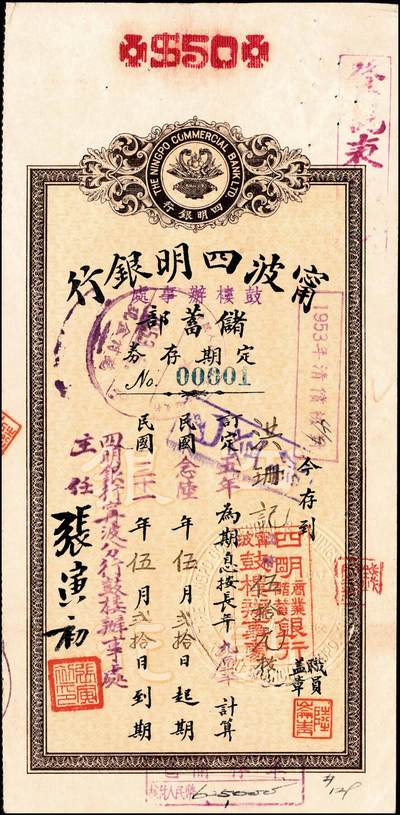 $50
THE NINGPO COMMERCIAL BANK LTD
行銀明四
行銀明四波甯
處事辦樓鼓
部蓄儲
券存期定
No. 00001
1953年清償
今存到
洪珊記
伍拾元整
訂定五年為期息按長年九厘計算
民國念陸年伍月弍拾日起期
民國三十一年伍月弍拾日到期
四明銀行寧波分行鼓樓辦事處
主任 張寅初
四明
商業
儲蓄
銀行
職員
蓋章